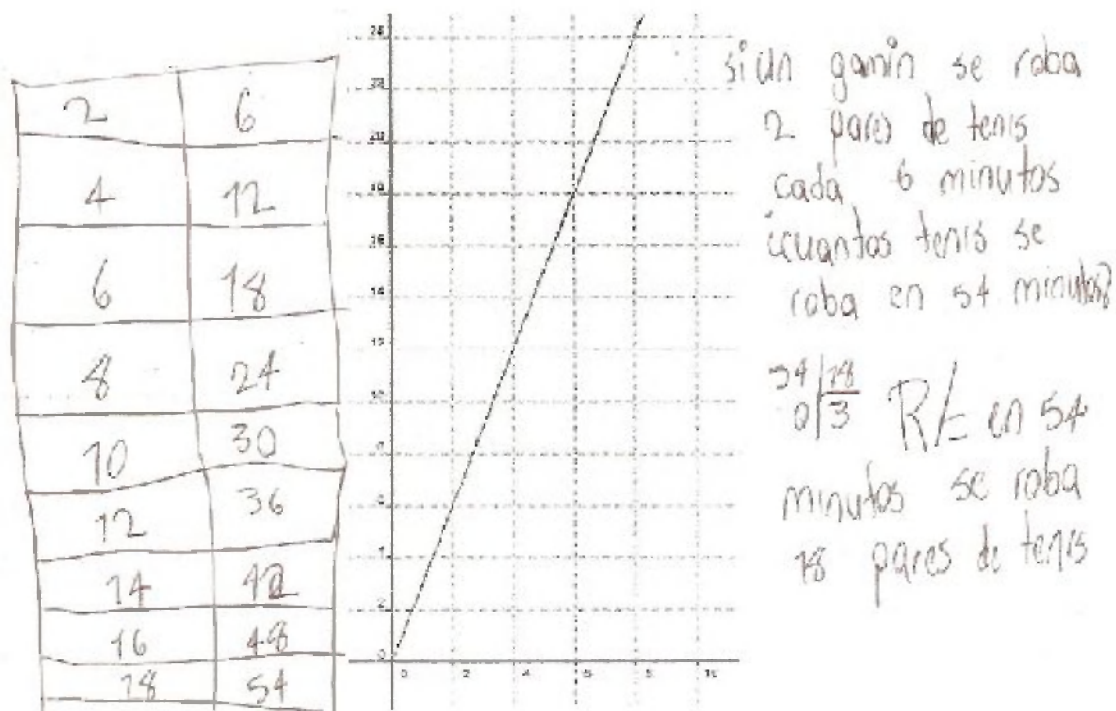 2 6
4 12
6 18
8 24
10 30
12 36
14 42
16 48
18 54
24
20
0
2 4 6 8
si un gamin se roba
2 pares de tenis
cada 6 minutos
¿cuantos tenis se
roba en 54 minutos?
54 18
0 3
R/= en 54
minutos se roba
18 pares de tenis